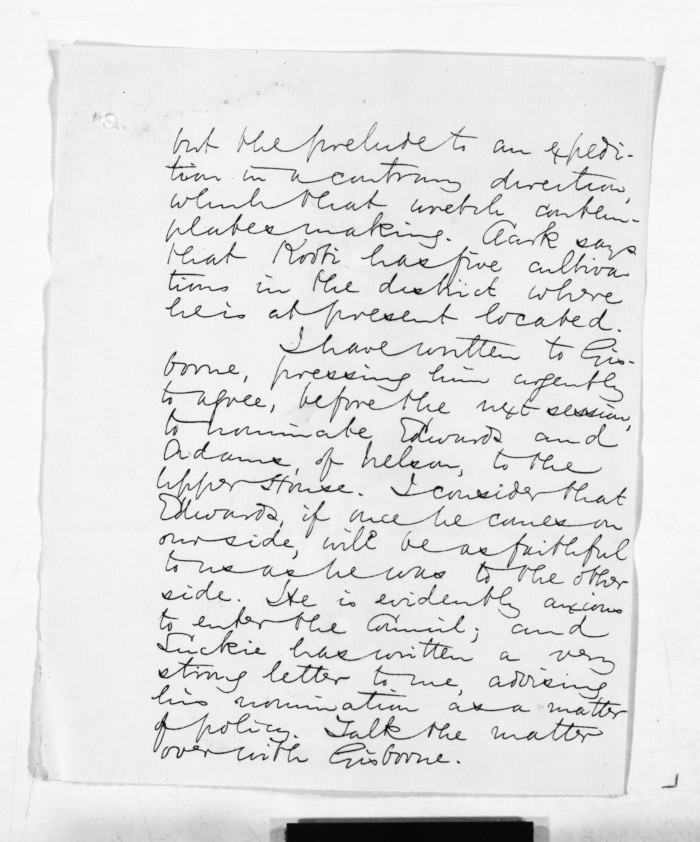 2.
but the prelude to an expedi-
tion in a contrary direction,
which that wretch contem-
plates making. Clark says
that Kooti has five cultiva
tions in the district where
he is at present located.
I have written to Gis-
borne, pressing him urgently
to agree, before the next session,
to nominate Edwards and
Adams, of Nelson, to the
Upper House. I consider that
Edwards, if once he comes on
our side, will be as faithful
to us as he was to the other
side. He is evidently anxious
to enter the Council; and
Luckie has written a very
strong letter to me, advising
his nomination as a matter
of policy. Talk the matter
over with Gisborne.